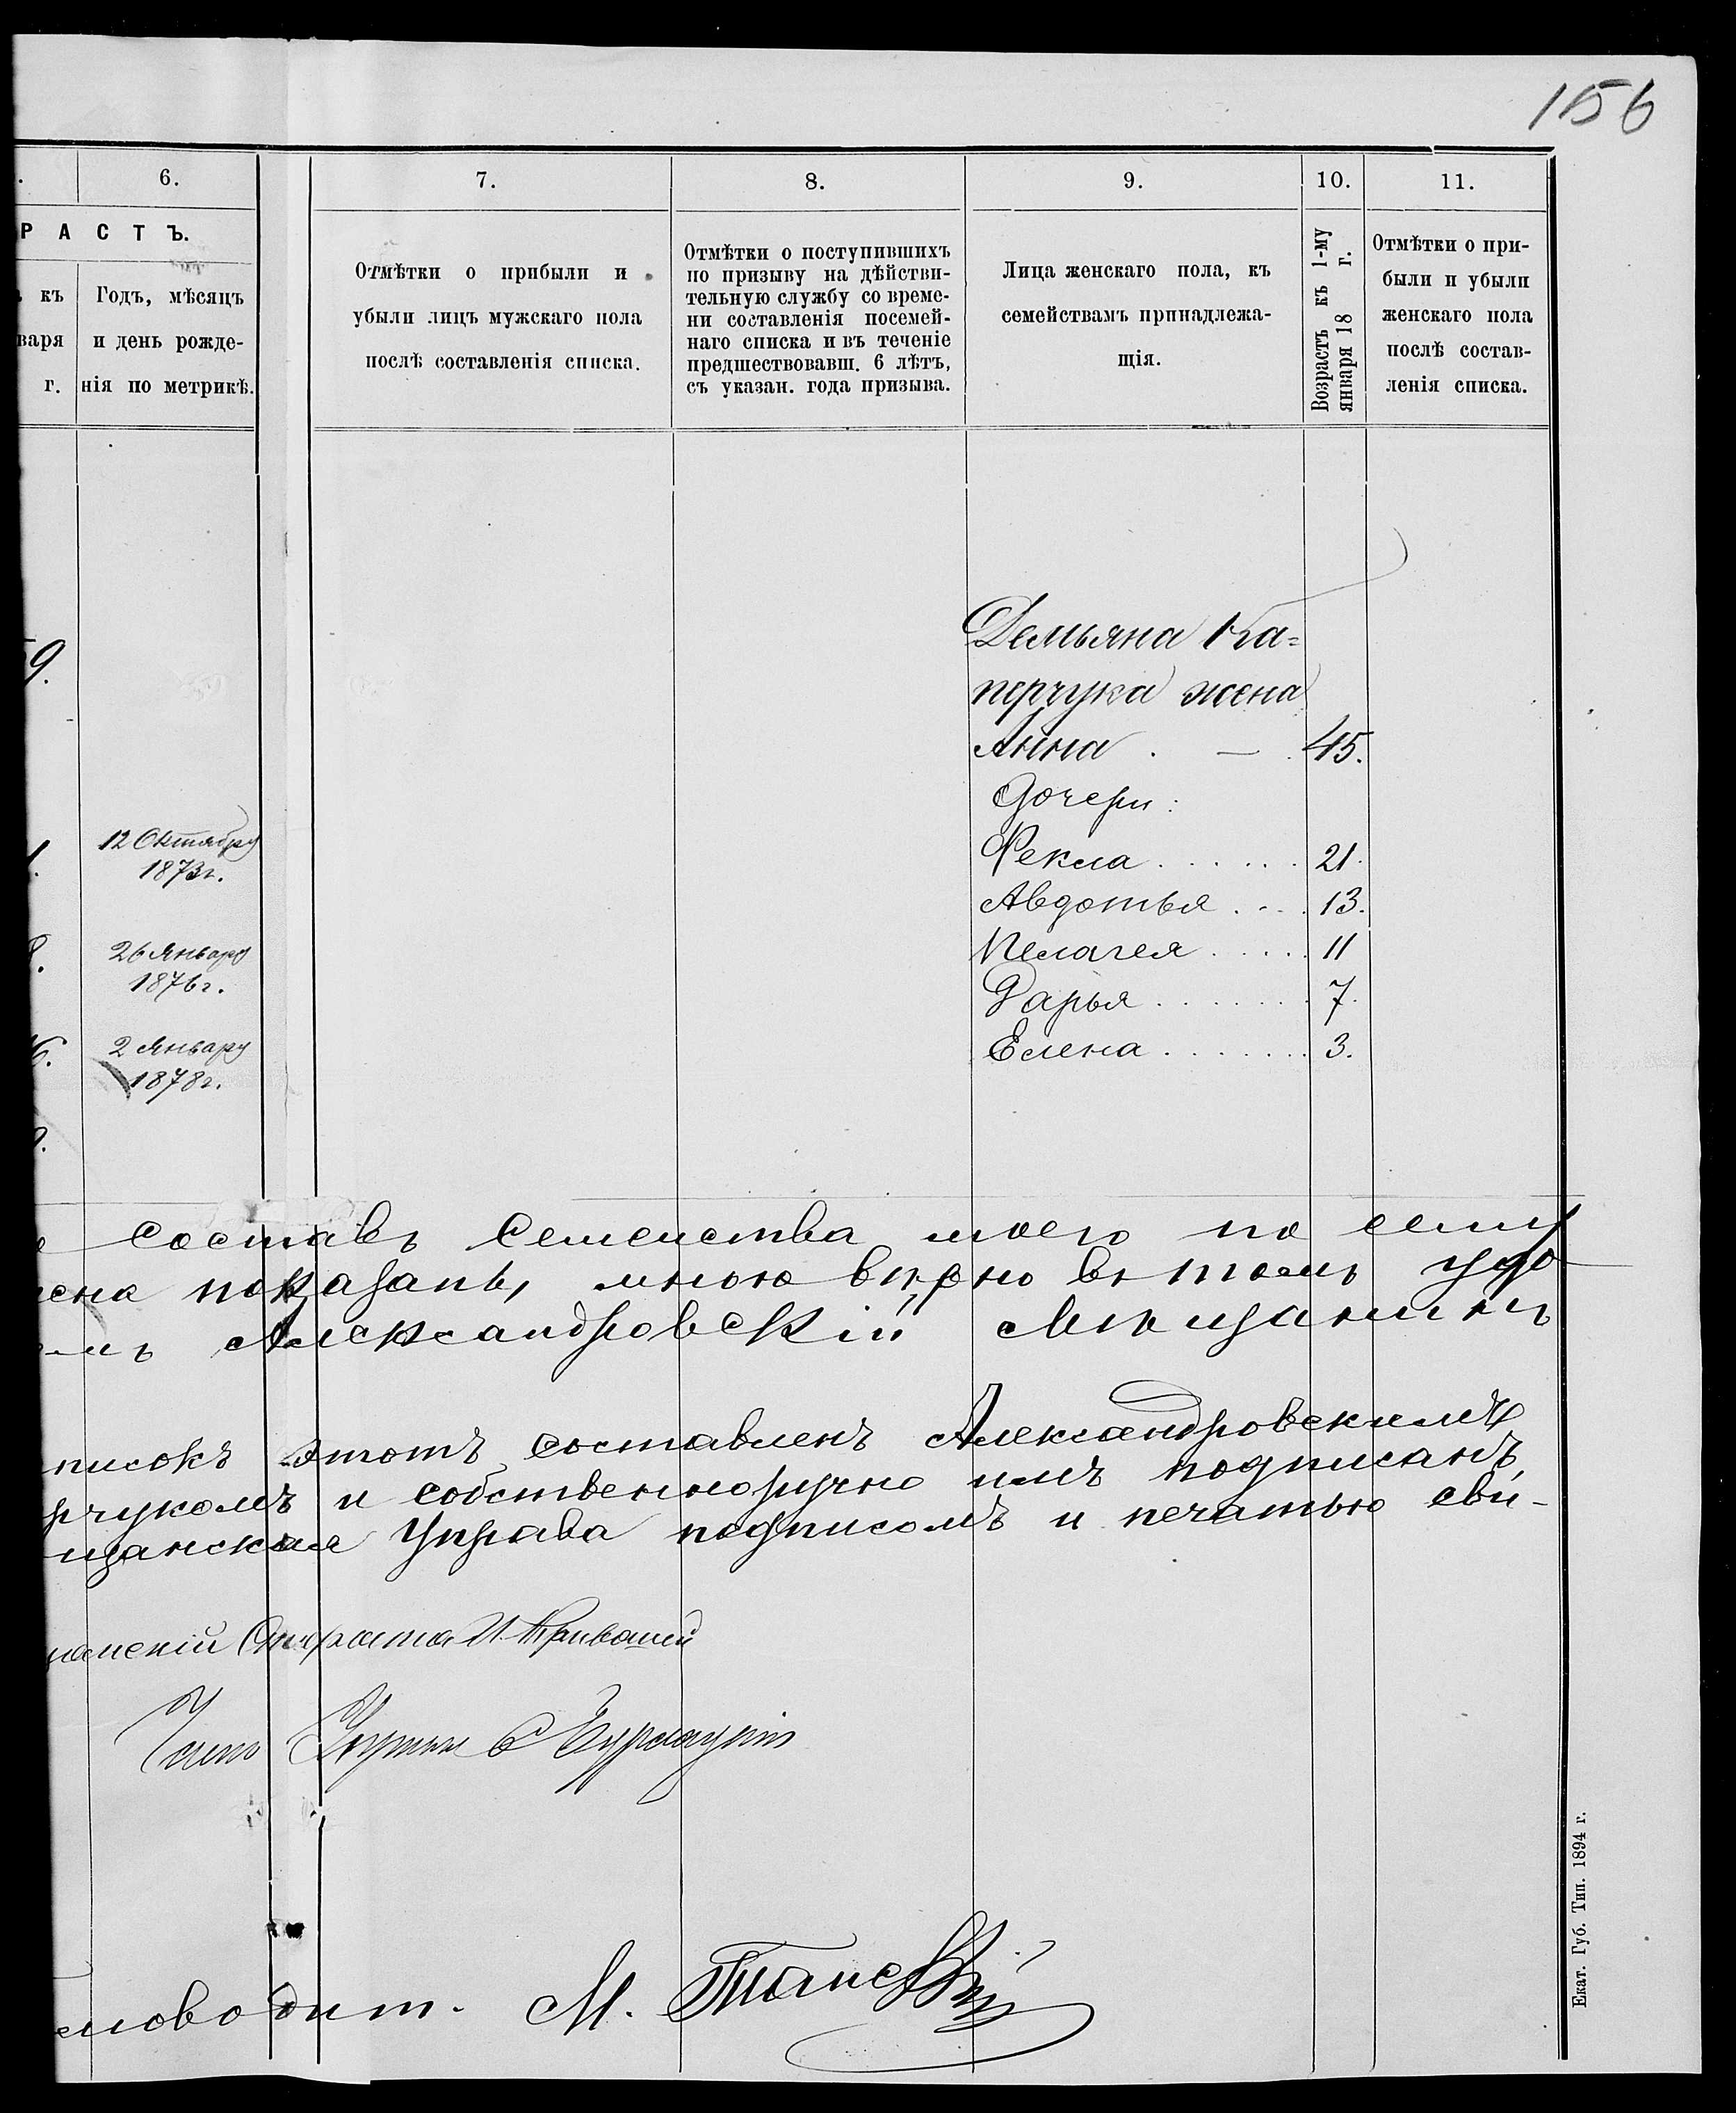 156
6.
7.
8.
9.
10.
11.
РАСТЪ.
къ
варя
г.
Годъ, мѣсяцъ
и день рожде-
нія по метрикѣ.
Отмѣтки о прибыли и
убыли лицъ мужскаго пола
послѣ составленія списка.
Отмѣтки о поступившихъ
по призыву на дѣйстви-
тельную службу со време-
ни составленія посемей-
наго списка и въ теченіе
предшествовавш. 6 лѣтъ,
съ указан. года призыва.
Лица женскаго пола, къ
семействамъ принадлежа-
щія.
Возрастъ къ 1-му
января 18 г.
Отмѣтки о при-
были и убыли
женскаго пола
послѣ состав-
ленія списка.
Демьяна Ка=
перчука жена
Анна . — . 45.
Дочери:
Фекла . . . . . . 21.
Авдотья . . . . 13.
Пелагея . . . . . 11
Дарья . . . . . . . 7.
Елена . . . . . . . 3.
9.
12 Октября
1873г.
26 Января
1876г.
2 Января
1878г.
6.
составъ семейства моего по сему
показанъ, мною вѣрно въ томъ удо
Александровскій Мѣщанинъ
писокъ этотъ составленъ Александровскимъ
рчукомъ и собственноручно имъ подписанъ,
щанская Управа подписомъ и печатью сви-
щанскій Староста И.
Членъ Управы
ловодит. М.
Екат. Губ. Тип. 1894 г.